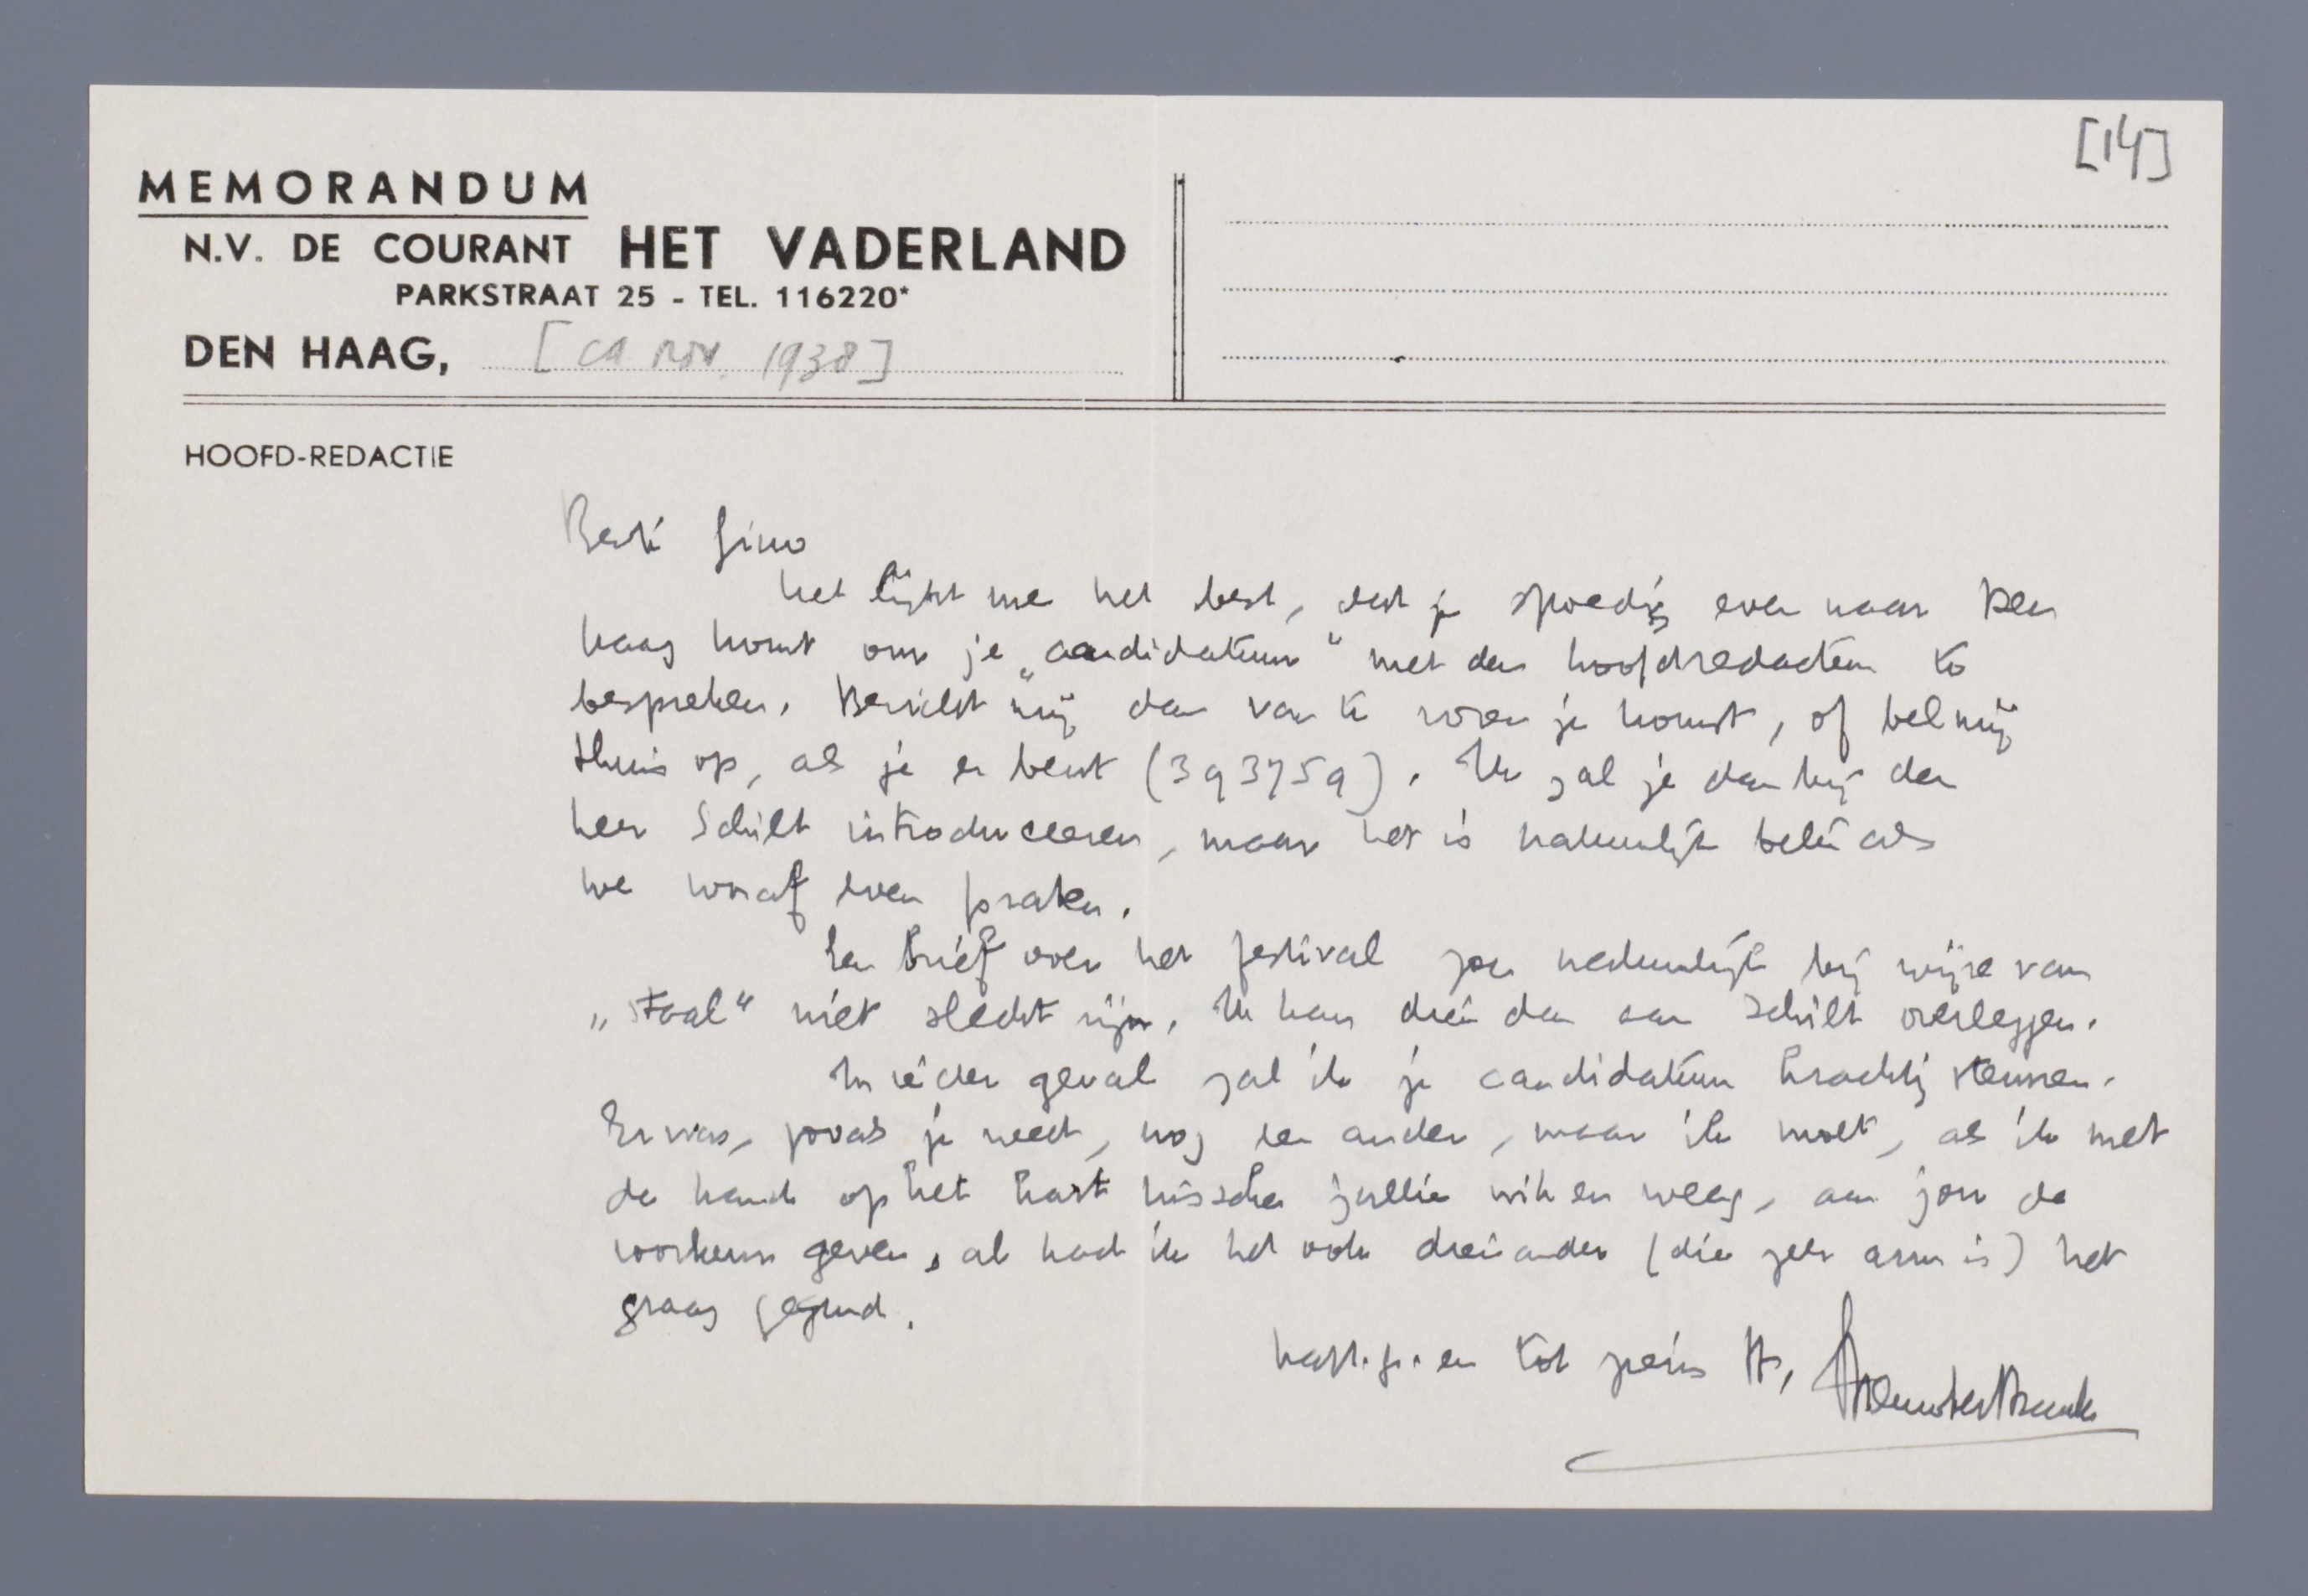 [14]
MEMORANDUM
N.V. DE COURANT HET VADERLAND
PARKSTRAAT 25 - TEL. 116220*
DEN HAAG, [ca nov. 1938]
HOOFD-REDACTIE
Beste Gino
het lijkt me het best, dat je spoedig even naar Den
Haag komt om je „candidatuur" met den hoofdredacteur te
bespreken. Bericht mij dan van te voren je komst, of bel mij
thuis op, als je er bent (393759). Ik zal je dan bij den
heer Schilt introduceeren, maar het is natuurlijk beter als
we vooraf even praten.
Een brief over het festival zou natuurlijk bij wijze van
„staal" niet slecht zijn. Ik kan die dan aan Schilt overleggen.
In ieder geval zal ik je candidatuur krachtig steunen.
Er was, zooals je weet, nog een ander, maar ik moet, als ik met
de hand op het hart tusschen jullie wik en weeg, aan jou de
voorkeur geven, al had ik het ook dien ander (die zeer arm is) het
graag gegund.
hart. gr. en tot ziens tt,
Menno ter Braak